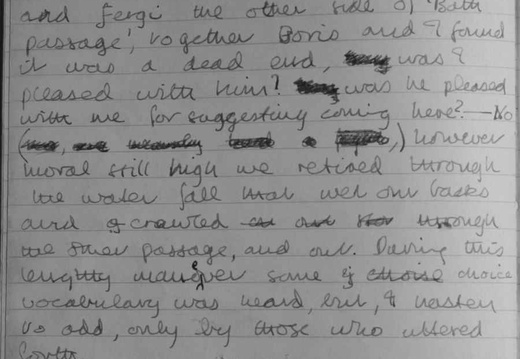 and Fergi the other side of Bath
passage', together Boris and I found
it was a dead end, was I
pleased with him? was he pleased
with me for suggesting coming here? — No
( ,) however
moral still high we retired through
the water fall that wet our backs
and crawled through
the other passage, and out. During this
lengthy manouver some choice
vocabulary was heard, but, I hasten
to add, only by those who uttered
forth